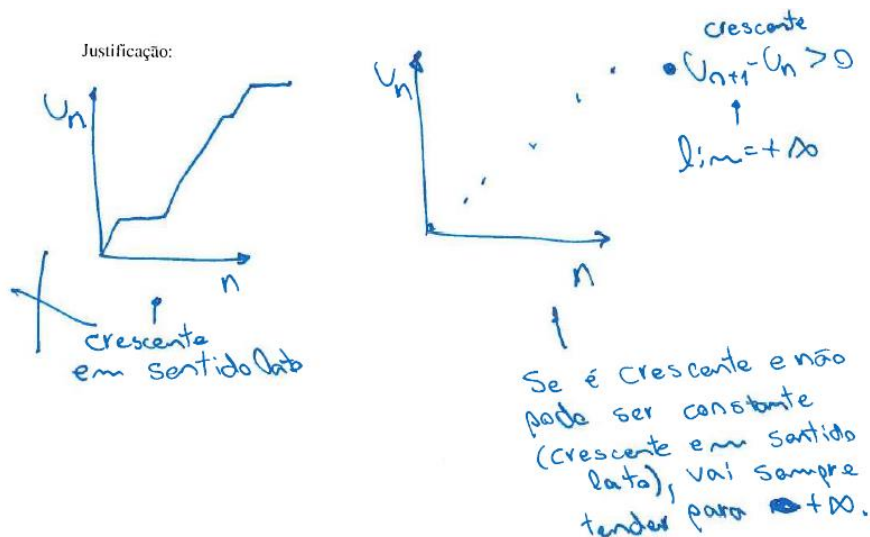 Justificação:
Un
n
crescente
em sentido lato
Un
n
crescente
Un+1 - Un > 0
lim = +∞
Se é crescente e não
pode ser constante
(crescente em sentido
lato), vai sempre
tender para +∞.